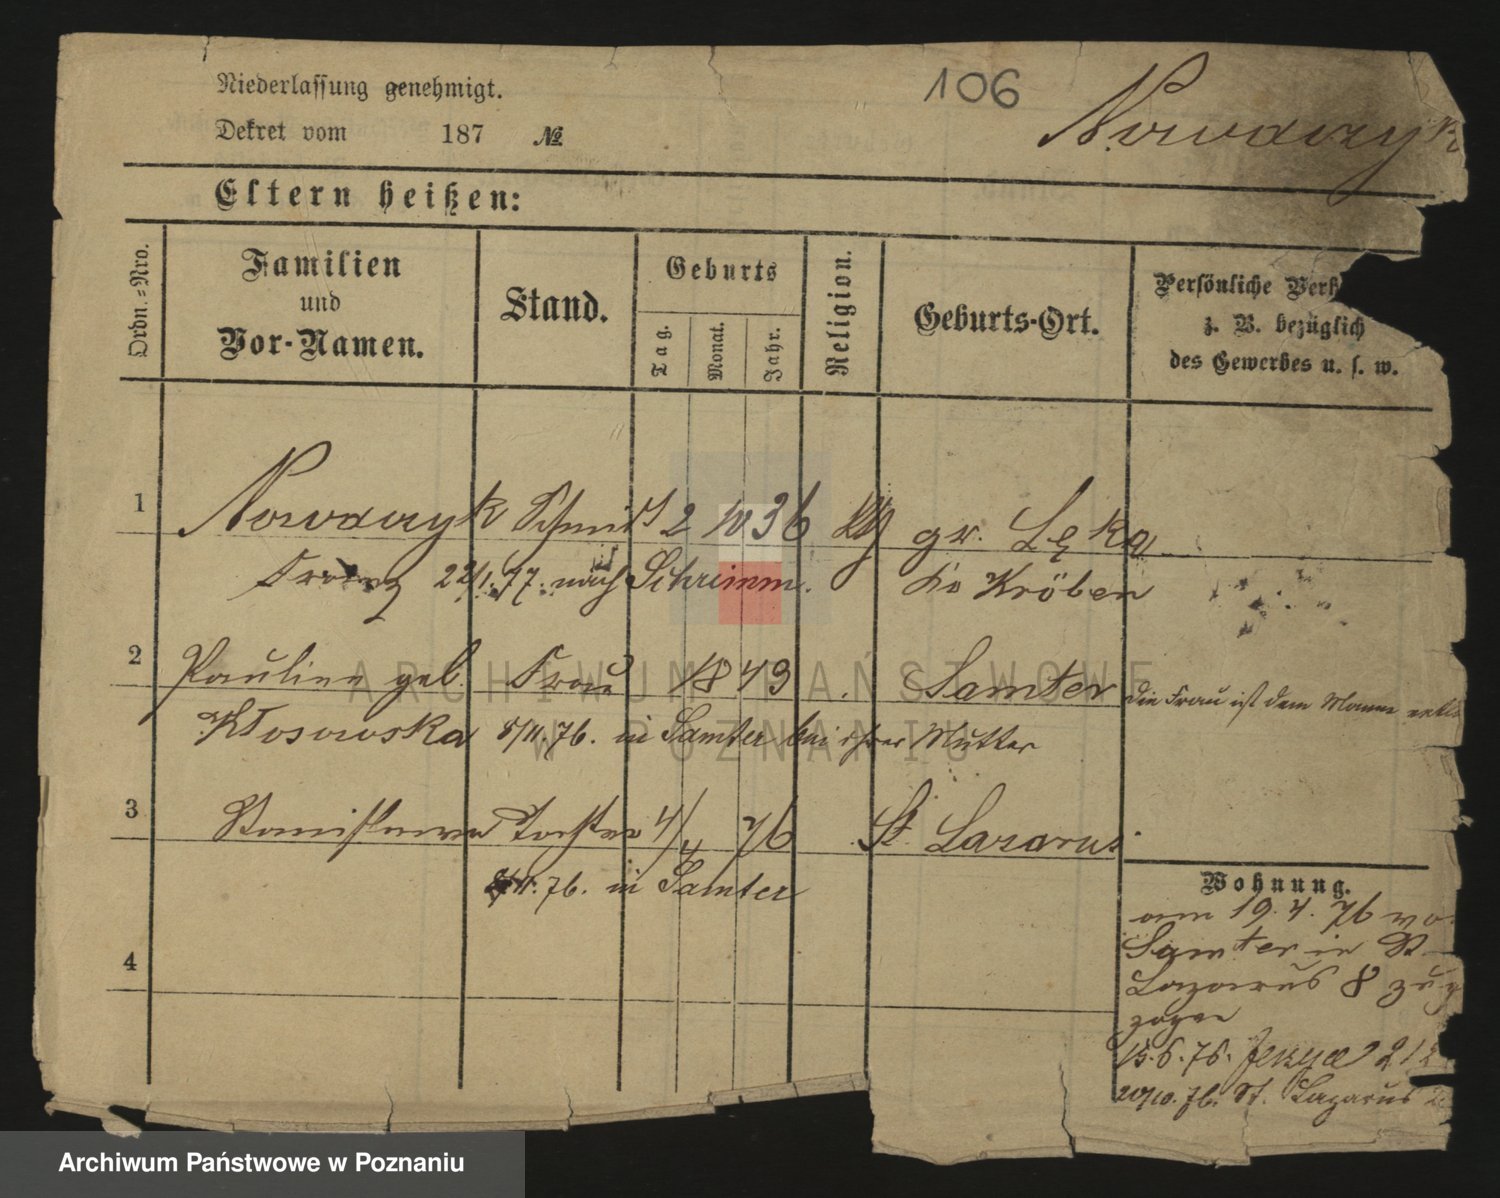 Niederlassung genehmigt.
106
Nowaczyk
Dekret vom 187 №
Eltern heißen:
Ordn.=Nro.
Familien
und
Vor-Namen.
Stand.
Geburts
Tag.
Monat.
Jahr.
Religion.
Geburts-Ort.
Persönliche Verh
z. B. bezüglich
des Gewerbes u. s. w.
1 Nowaczyk Schmidt 2 10 36 kth gr. Lęka
Franz 22/1. 77. nach Schrimm. Kr. Kröben
2 Pauline geb. Frau 1849 Samter die Frau ist dem Manne entl
Kłosowska 8/11. 76. in Samter bei ihrer Mutter
3 Stanislawa Tochter 4/4 76 St. Lazarus
8/11. 76. in Samter
4
Wohnung.
am 19. 4. 76 vo
Samter in St
Lazarus 8 zuge
zogen
15. 6. 76. Jerzyce 21
20/10. 76. St. Lazarus
ARCHIWUM PAŃSTWOWE
W POZNANIU
Archiwum Państwowe w Poznaniu